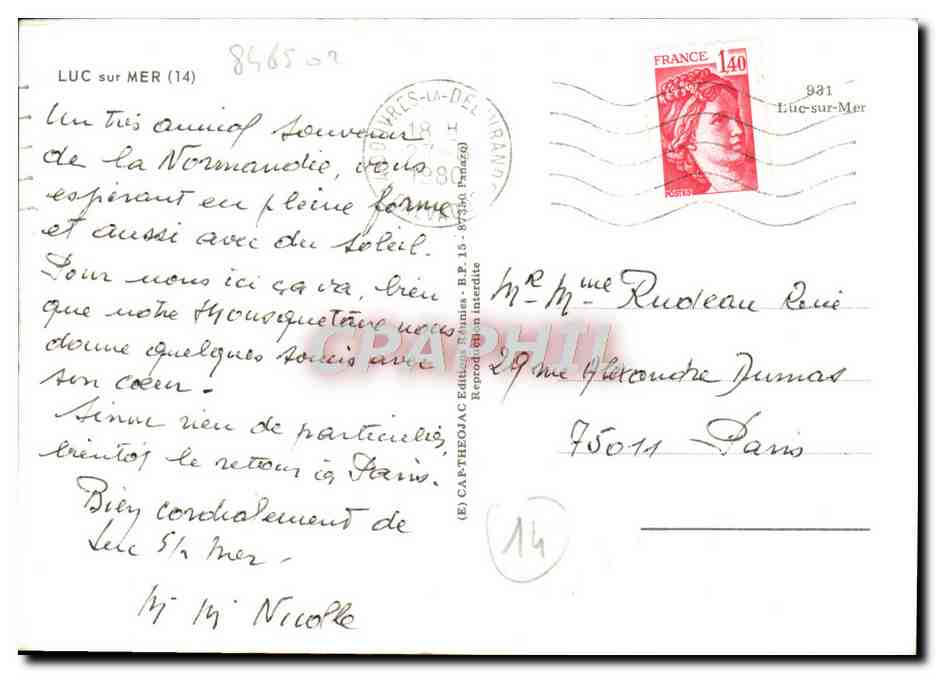 LUC sur MER (14)
8465 02
Un très amical souvenir
de la Normandie, vous
espérant en pleine forme
et aussi avec du soleil.
Pour nous ici ça va, bien
que notre Mousquetaire nous
donne quelques soucis avec
son cœur -
Sinon rien de particulier,
bientôt le retour à Paris.
Bien cordialement de
Luc S/ Mer -
M M Nicolle
DOUVRES-LA-DELIVRANDE
18 H
1980
CALVADOS
(E) CAP-THEOJAC Editions Réunies - B.P. 15 - 87350 Panazol
Reproduction interdite
FRANCE 1,40
POSTES
931
Luc-sur-Mer
Mr Mme Rudeau René
29 rue Alexandre Dumas
75011 Paris
14
CPAPHIL